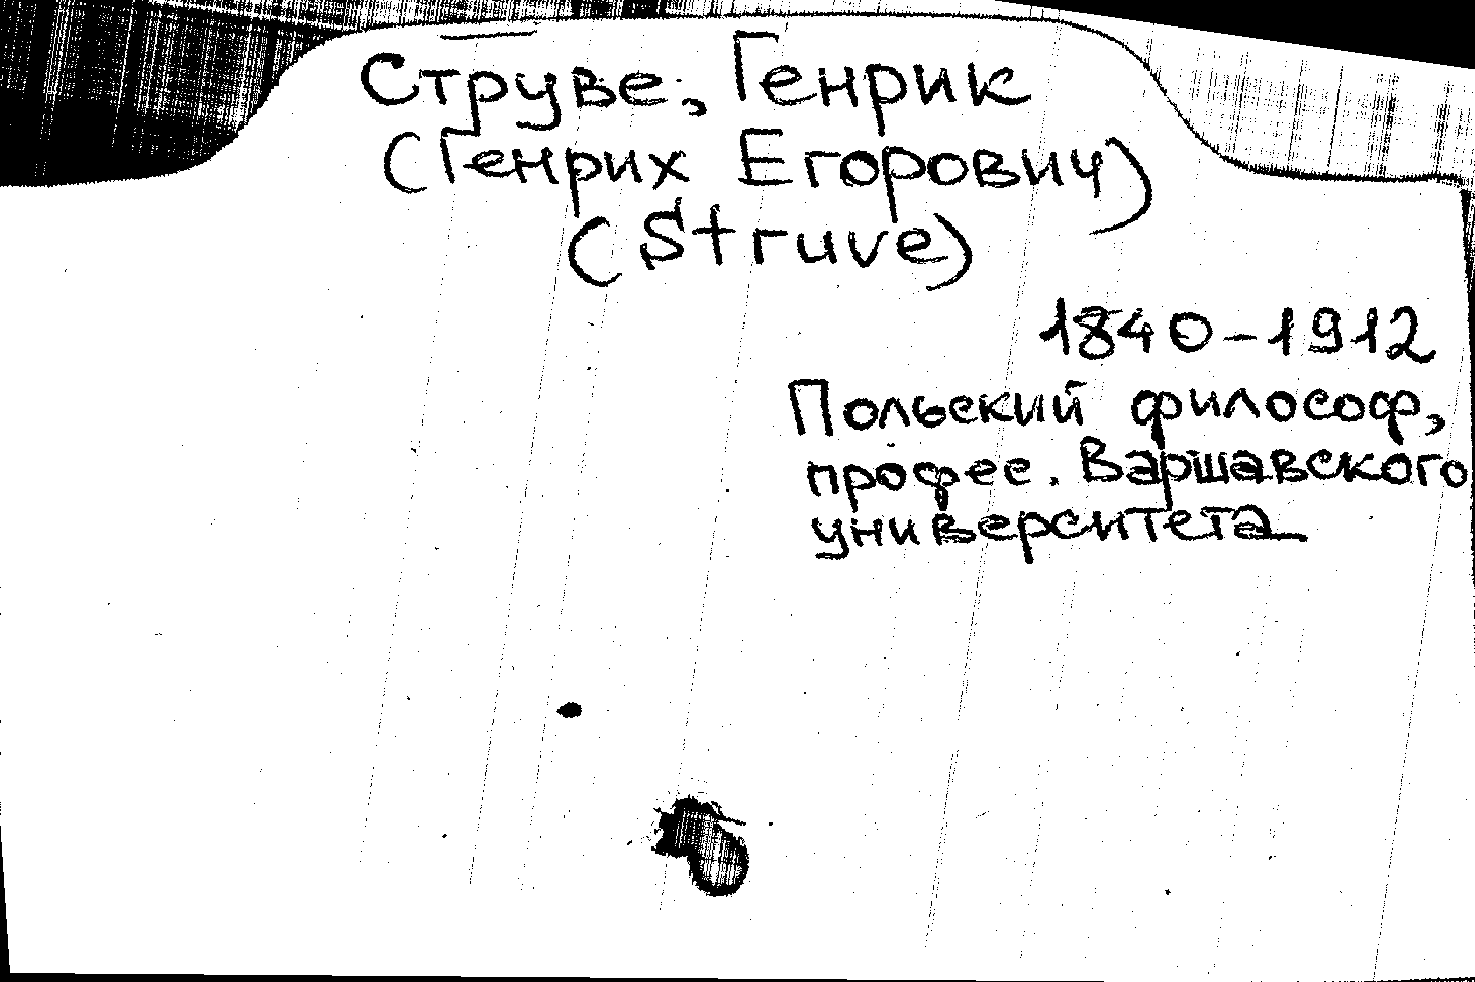 Струве, Генрик
(Генрих Егорович)
(Struve)
1840-1912
Польский философ,
професс. Варшавского
университета